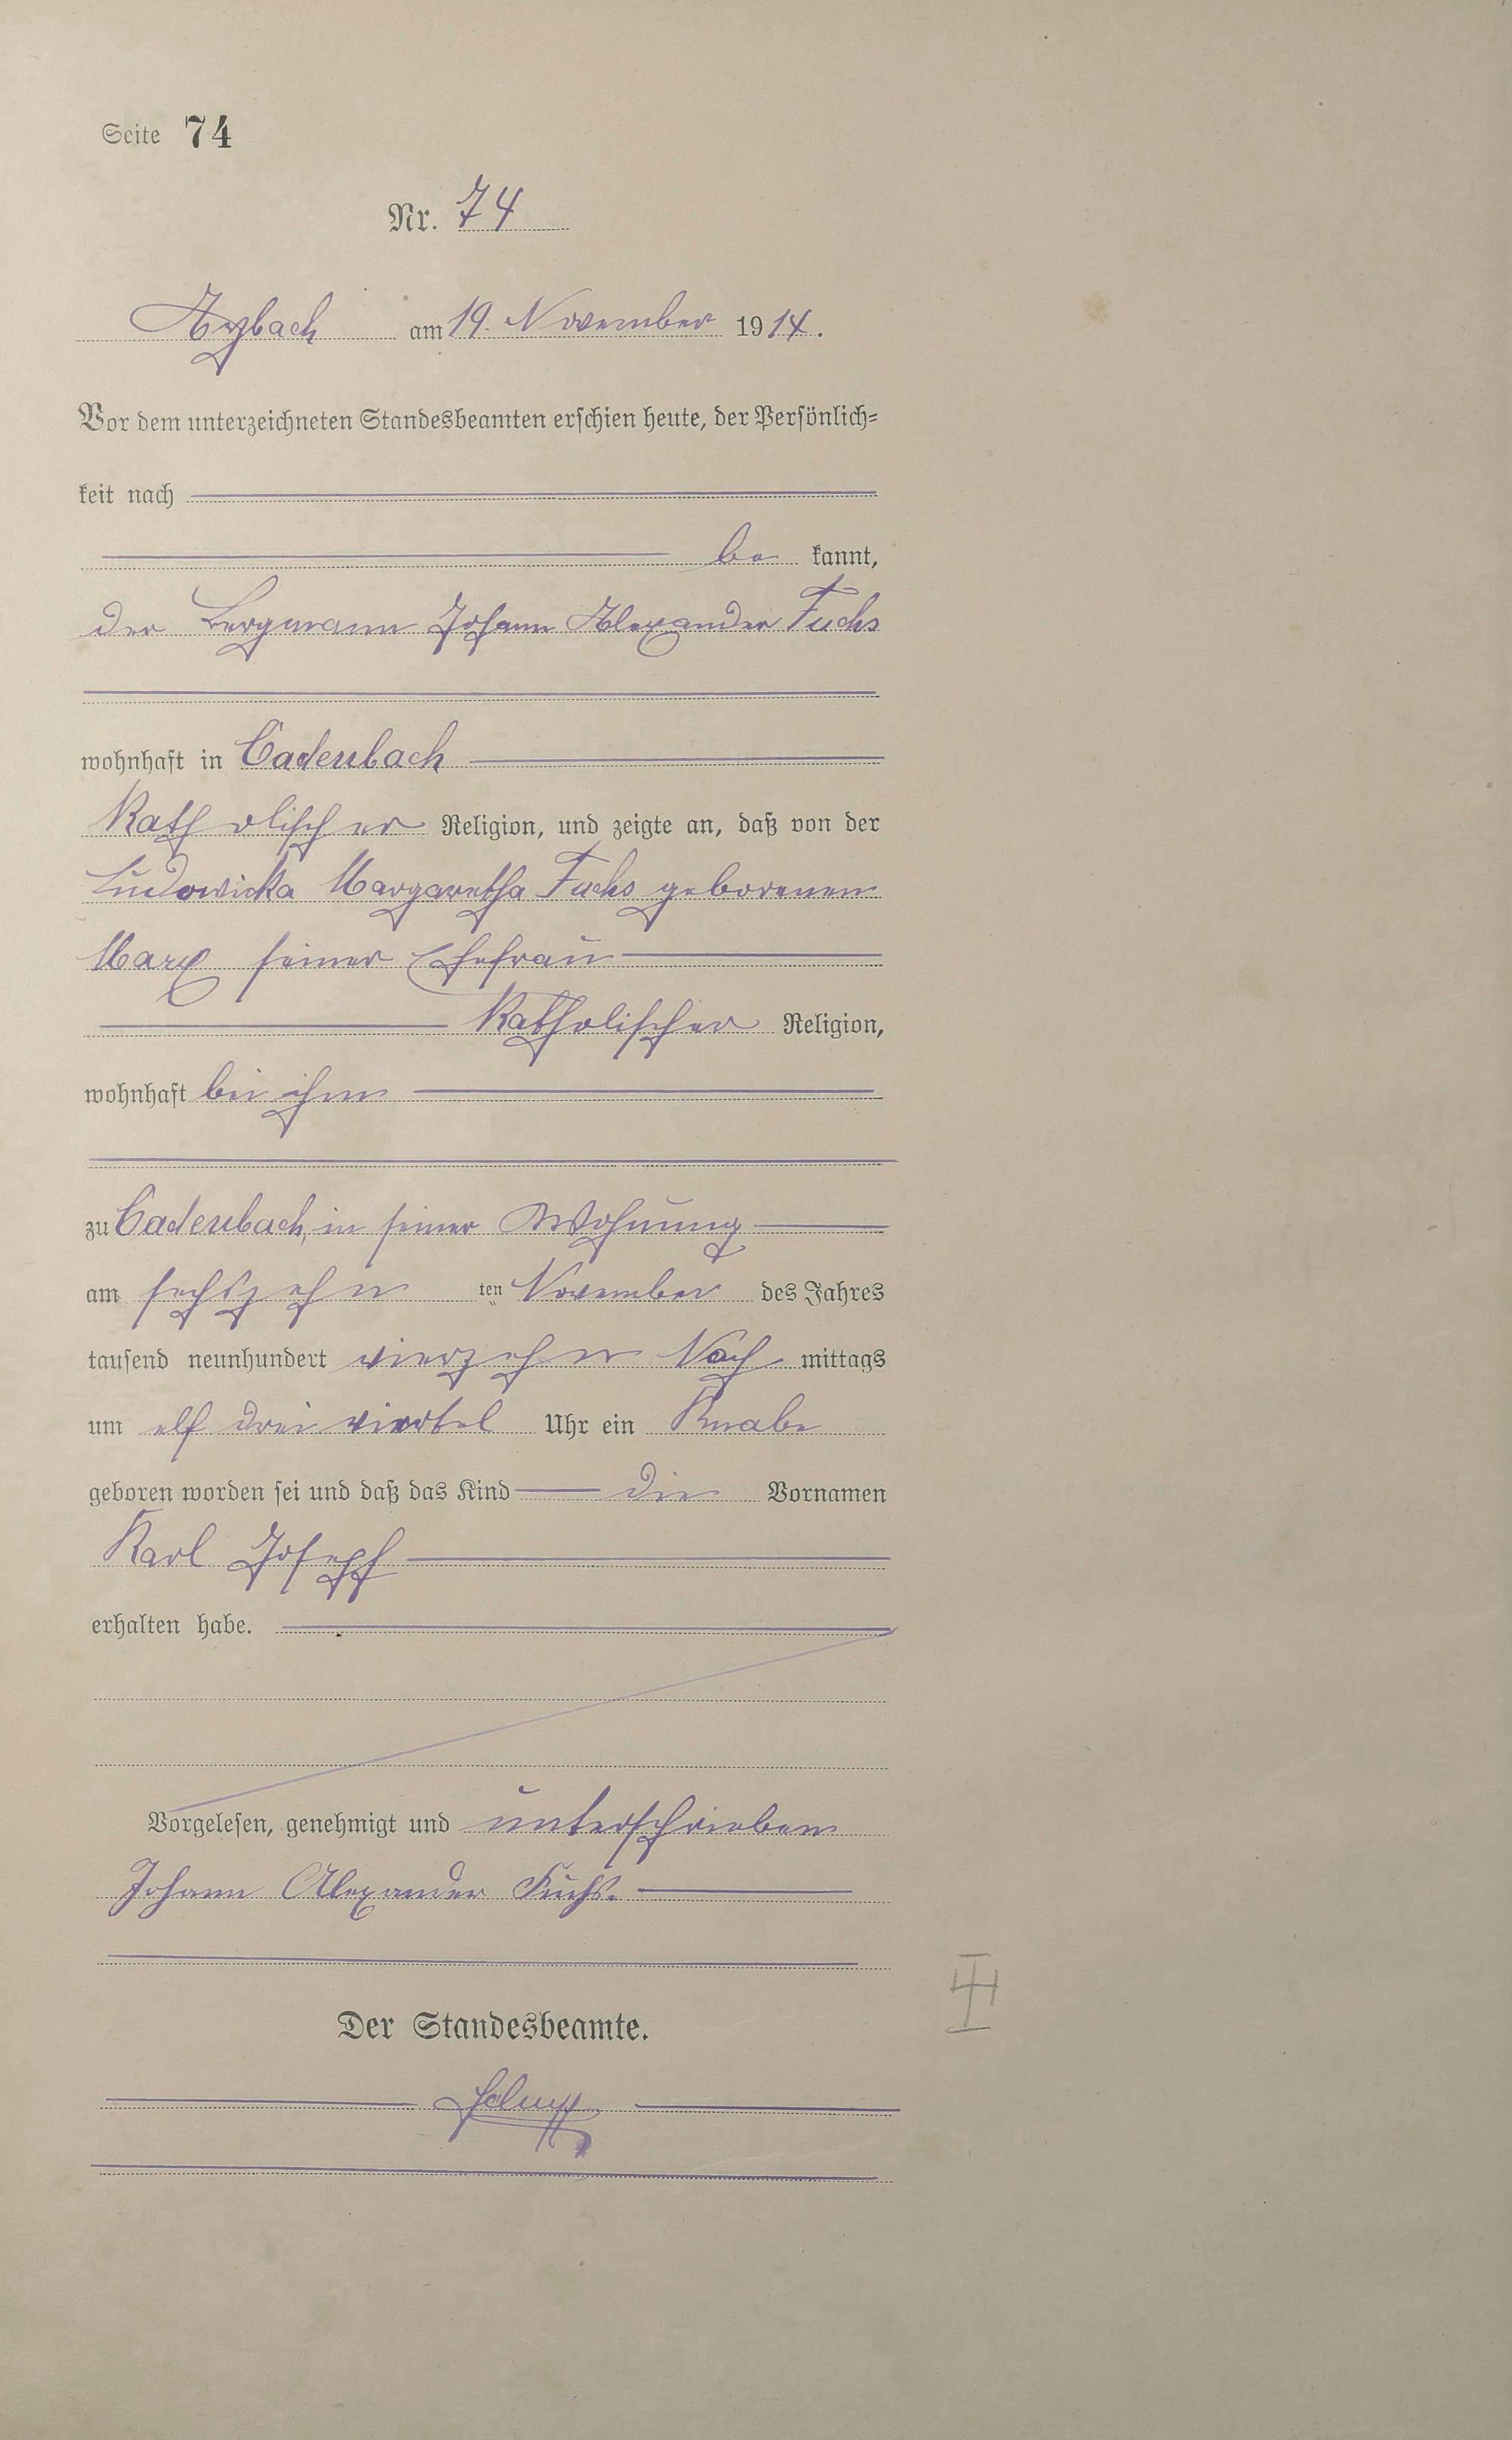 Seite 74
Nr. 74
Arzbach am 19. November 1914.
Vor dem unterzeichneten Standesbeamten erschien heute, der Persönlich=
keit nach
be kannt,
der Bergmann Johann Alexander Fuchs
wohnhaft in Cadenbach
Katholischer Religion, und zeigte an, daß von der
Ludowicka Margaretha Fuchs geborenen
Marx seiner Ehefrau
Katholischer Religion,
wohnhaft bei ihm
zu Cadenbach, in seiner Wohnung
am sechszehn ten November des Jahres
tausend neunhundert vierzehn Nach mittags
um elf drei viertel Uhr ein Knabe
geboren worden sei und daß das Kind die Vornamen
Karl Joseph
erhalten habe.
Vorgelesen, genehmigt und unterschrieben
Johann Alexander Fuchs.
Der Standesbeamte.